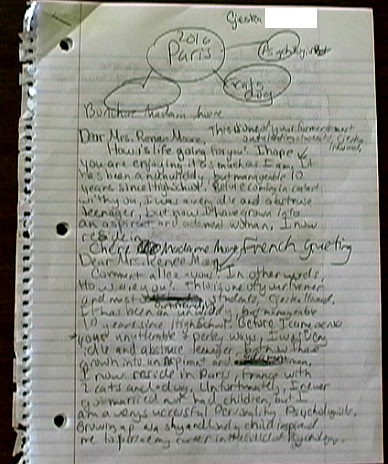 Gjesta
2016
Paris
Psychologist
cats
dog
Dear Mrs. Renee Moore, This is one of your former & most
outstanding students, Gjesta
How is life going for you? I hope
you are enjoying it as much as I am. It
has been an unwieldy, but manageable 10
years since high school. Before coming in contact
with you, I was a very idle and obstuse
teenager, but now I have grown into
an aspirant and adamant woman. I now
reside in
Chere Madame Moore French Greeting
Dear Mrs. Renee Moore,
Comment allez-vous? In other words,
How are you? This is one of your former
and most outstanding students, Gjesta
It has been an unwieldy, but manageable
10 years since High School. Before I came across
your unutterable & perky ways, I was a very
idle and abstruse teenager, but now I have
grown into an aspirant and woman,
I now reside in Paris, France with
cats and a dog. Unfortunately, I never
got married nor had children, but I
am a very successful Personality Psychologist.
Growing up as a shy and lonely child inspired
me to pursue my career in the field of Psychology.